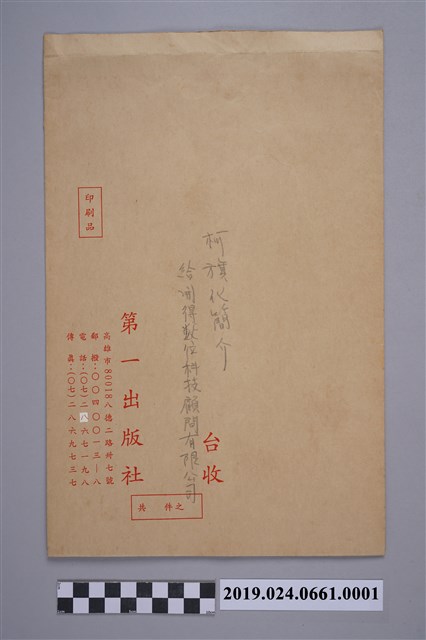 柯旗化簡介
給開得數位科技顧問有限公司
台收
印刷品
第一出版社
高雄市80018八德二路卅七號
郵撥：〇〇四〇〇一三—八
電話：(〇七)二八六七一九八
傳真：(〇七)二八六九七三七
共　件之
2019.024.0661.0001